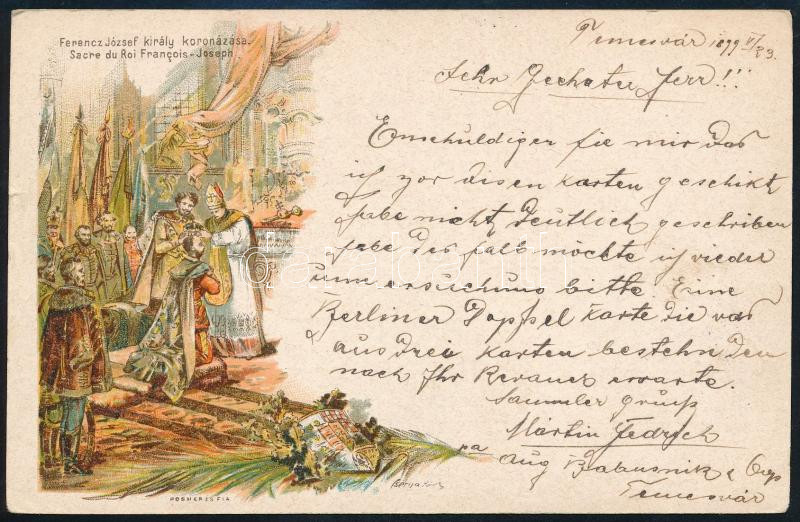 Ferencz József király koronázása.
Sacre du Roi François-Joseph.
Temesvár 1899 VI/23.
Sehr Geehrter Herr!!!
Enschuldigen sie mir das
ich vor disen Karten geschikt
habe nicht deutlich geschriben
habe des halb möchte ich wieder
umm ersuchung bitte Eine
Berliner Doppel Karte die vo
aus drei Karten bestehn den
nach Ihr Revance erwarte.
Sammler gruss
Martin
pa Aug Babusnik &
Temesvár
POSNER ÉS FIA